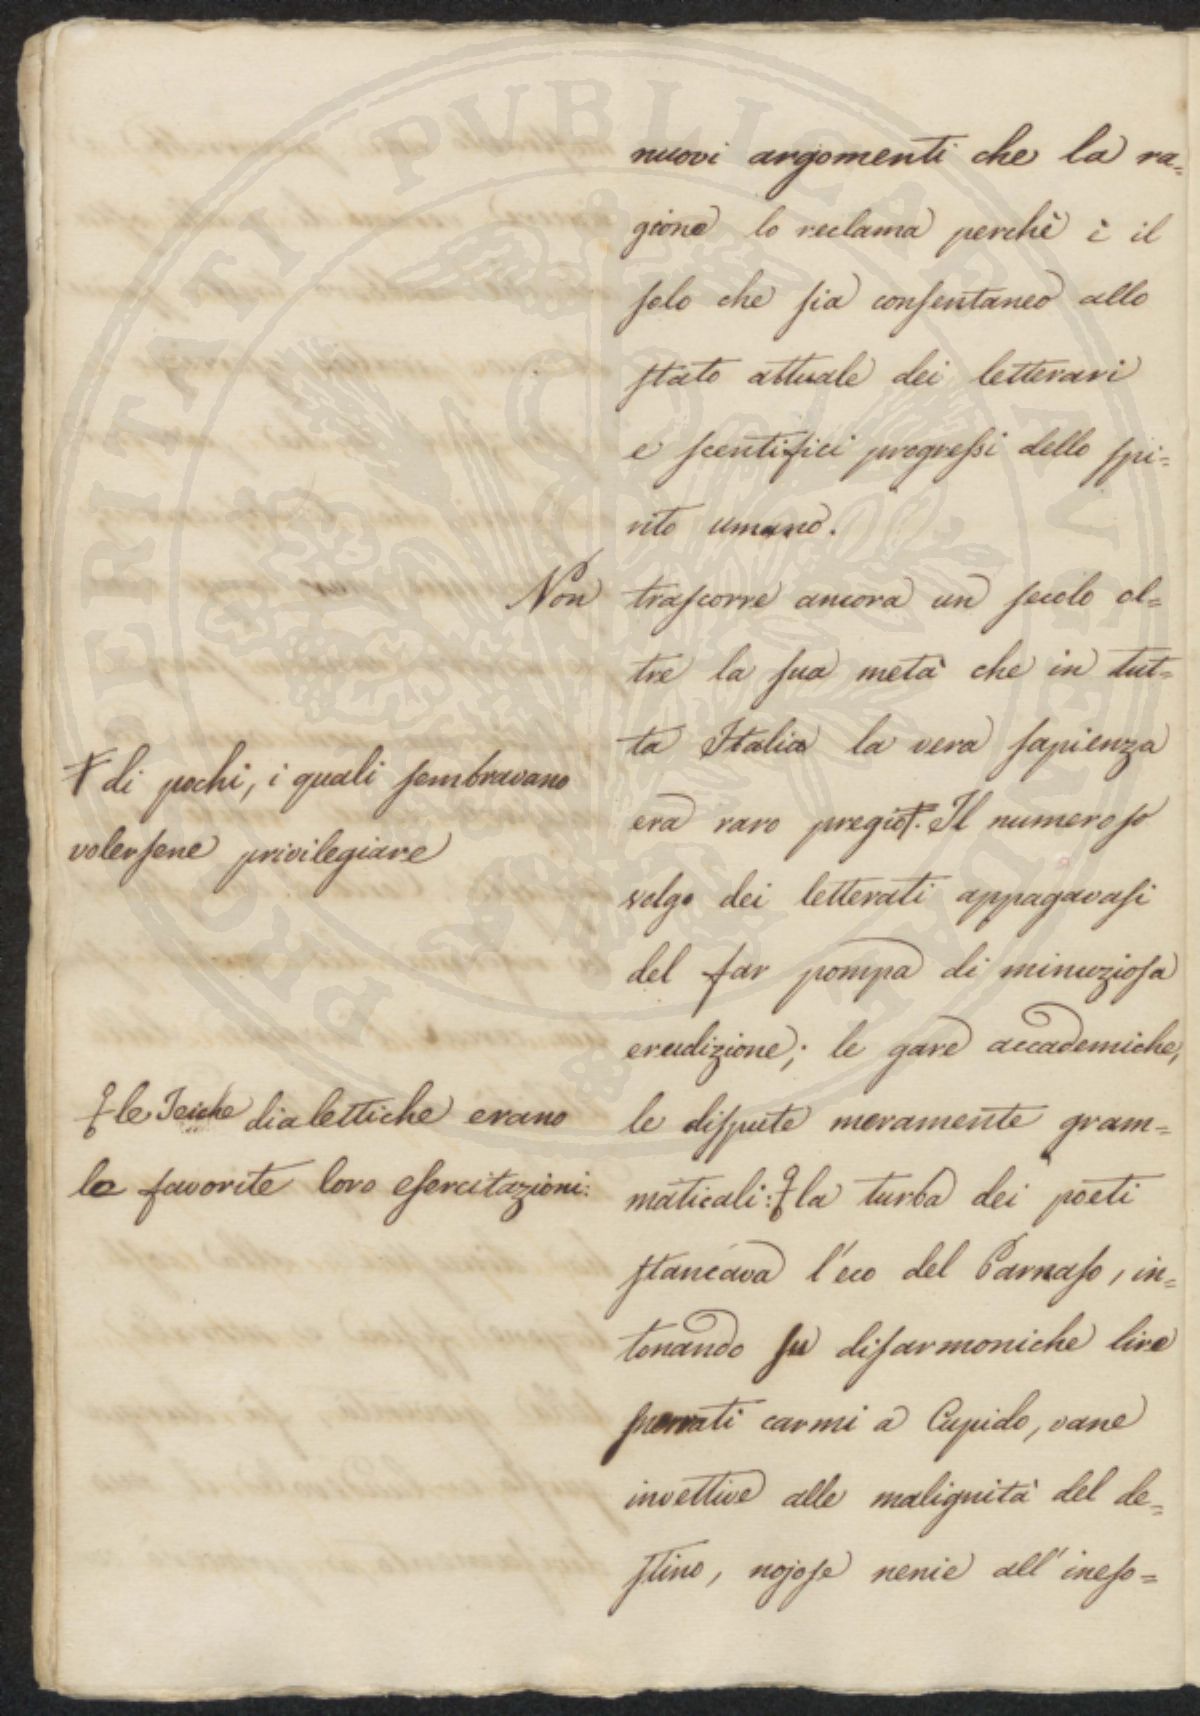 nuovi argomenti che la ra=
gione lo reclama perchè è il
solo che sia consentaneo allo
stato attuale dei letterari
e scentifici progressi dello spi=
rito umano.
Non trascorre ancora un secolo ol=
tre la sua metà che in tut=
ta Italia la vera sapienza
era raro pregio. Il numeroso
volgo dei letterati appagavasi
del far pompa di minuziosa
erudizione; le gare accademiche,
le dispute meramente gram=
maticali: la turba dei poeti
stancava l'eco del Parnaso, in=
tonando su disarmoniche lire
snervati carmi a Cupido, vane
invettive alle malignità del de=
stino, nojose nenie all'ineso=
di pochi, i quali sembravano
volersene privilegiare
le dialettiche erano
le favorite loro esercitazioni:
PERITATI PUBLICAE